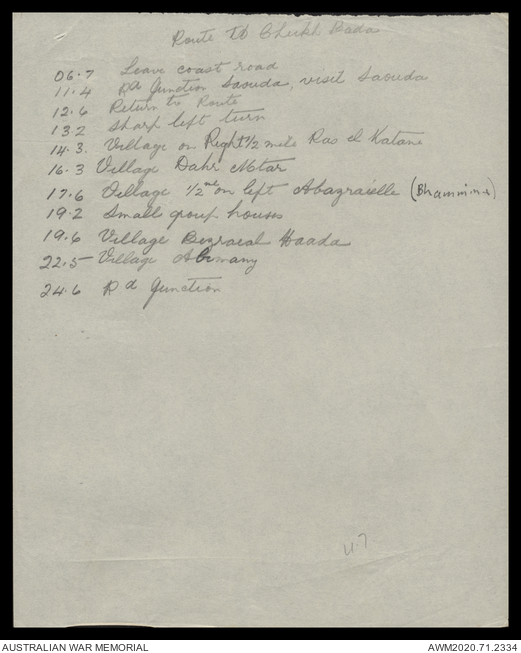 Route to Cheikh Bada
06.7 Leave coast road
11.4 Rd Junction Saouda, visit Saouda
12.6 Return to Route
13.2 Sharp left turn
14.3. Village on Right 1/2 mile Ras el Katane
16.3 Village Dahr Mtar
17.6 Village 1/2 me on left Abazraielle (Bhammine)
19.2 Small group houses
19.6 Village Bezraeal Haada
22.5 Village Alimany
24.6 Rd Junction
4.7
AUSTRALIAN WAR MEMORIAL AWM2020.71.2334